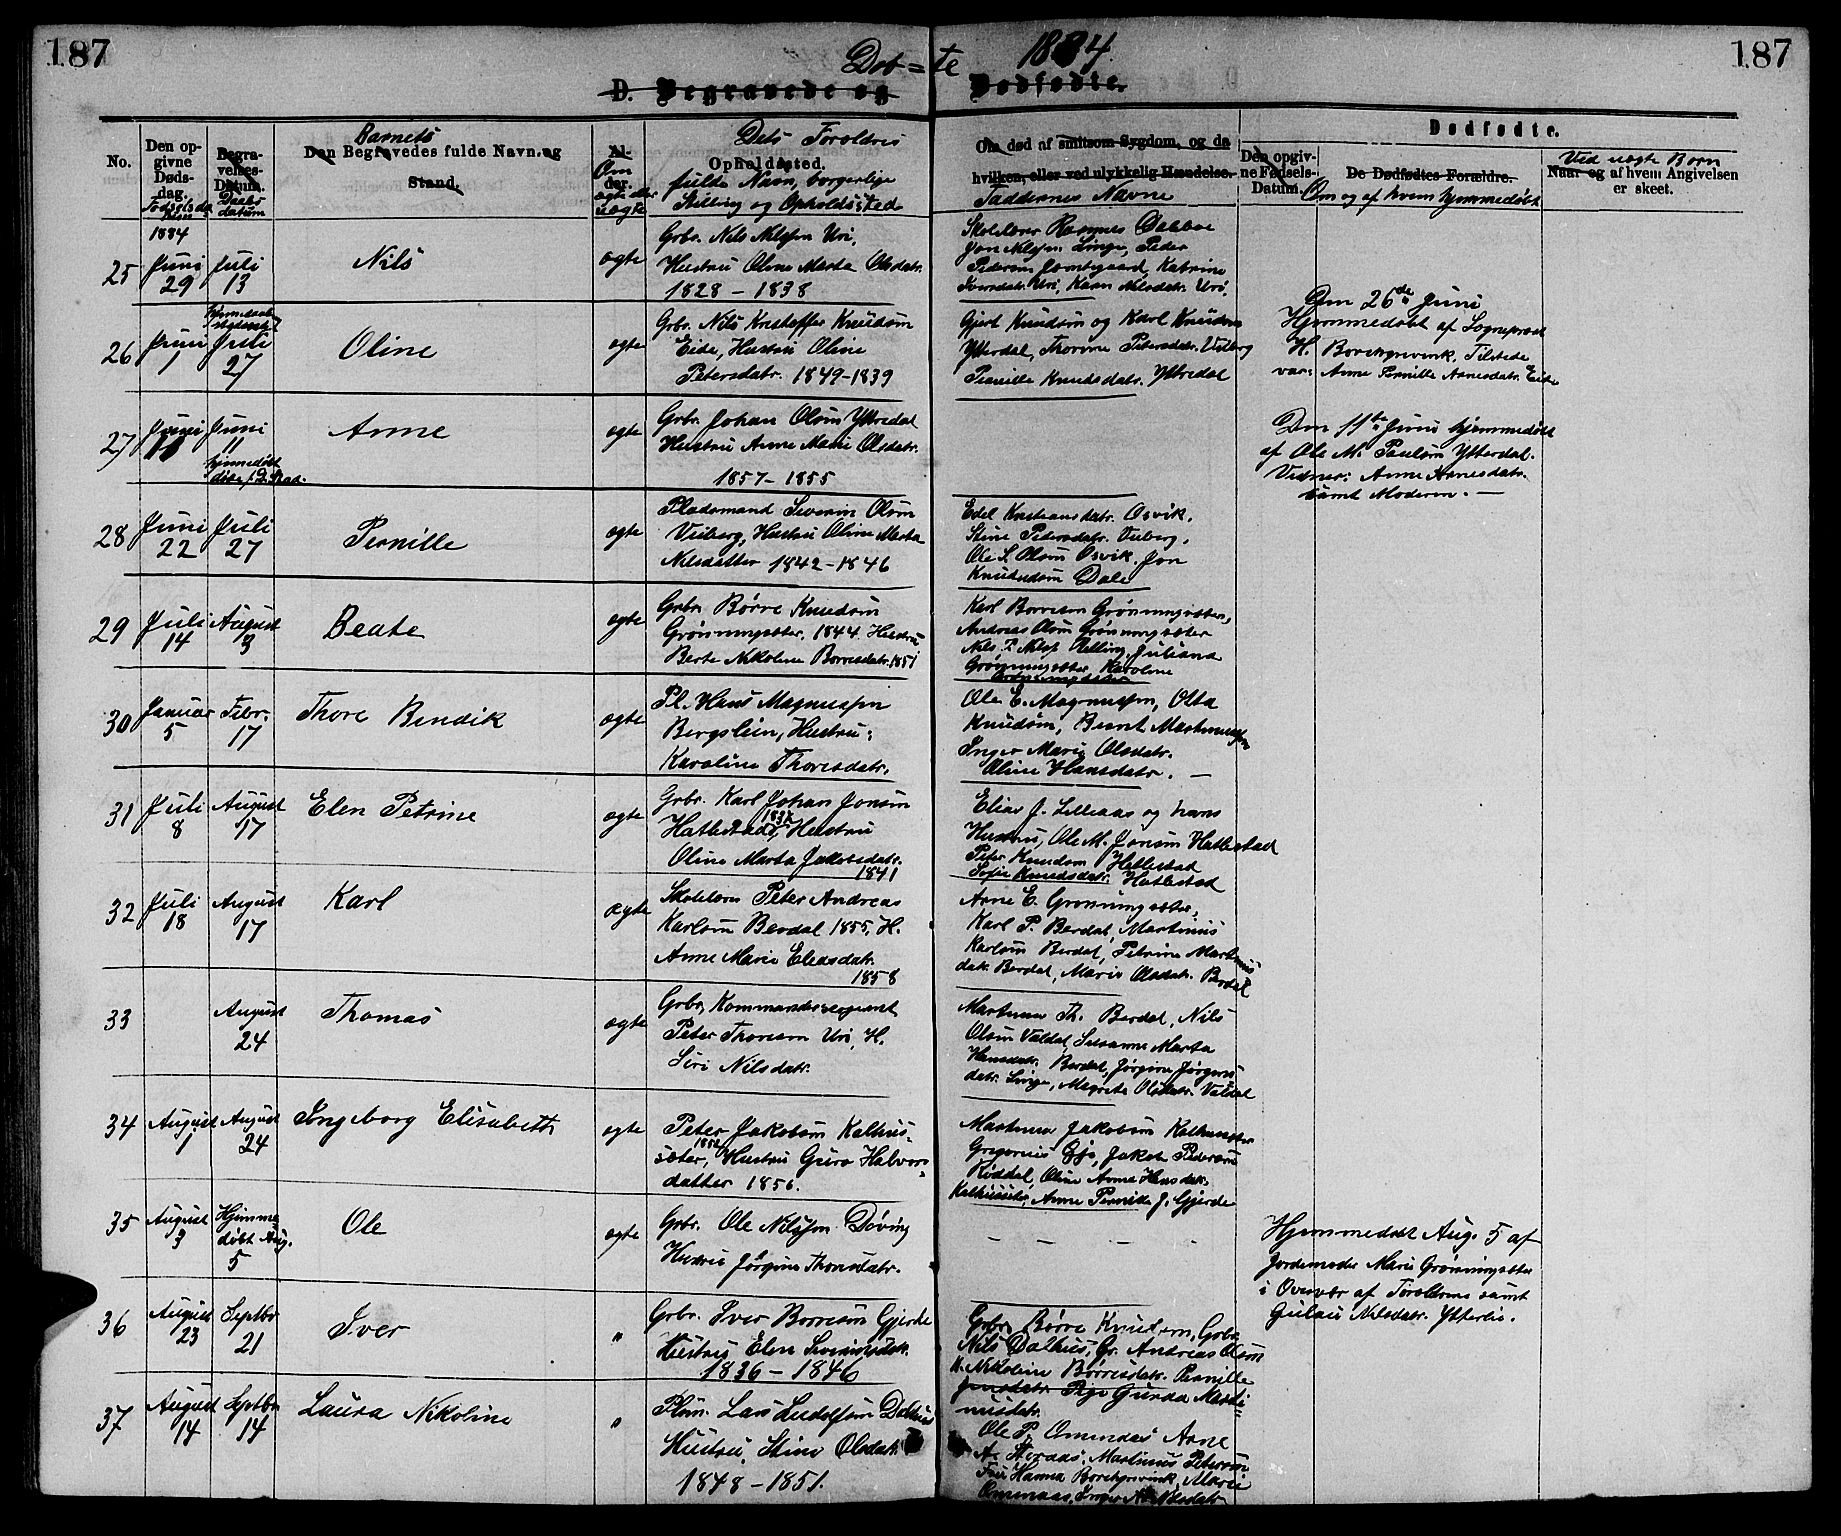 187
187
Dob=te 1884.
D. Begravede og Dødfødte.
No.
Den opgivne Dødsdag.
Fødselsdatum
Begravelses-Datum.
Daabsdatum
Barnets
Den Begravedes fulde Navn og Stand.
Alder.
Om ægte eller uægte
Dets Forældres
Opholdssted.
fulde Navn, borgerlige
Stilling og Opholdssted
Om død af smitsom Sygdom, og da
hvilken, eller ved ulykkelig Hændelse.
Faddernes Navne
Dødfødte.
Den opgivne Fødsels-Datum.
De Dødfødtes Forældre.
Om og af hvem hjemmedøbt
Ved uægte Børn
Naar og af hvem Angivelsen er skeet.
1884
25 Juni 29 Juli 13 Nils ægte
Grbr. Nils Nilssen Uri,
Hustru Oline Marta Olsdatr.
1828 - 1838
Skolelærer Rasmus Døbbe
Jon Nilssen Linge, Peder
Pedersen Jamtegaard, Katrine
Iversdatr. Uri, Karn Nilsdatr. Uri.
26 Juni 1 Juli 27 Oline ægte
Grbr. Nils Kristoffer Knudsøn
Eide, Hustru Oline
Petersdatr. 1849-1839
Gjert Knudsøn og Karl Knudsøn
Ytterdal, Thorine Petersdatr. Viberg
Pernille Knudsdatr. Ytterdal
Den 26de Juni
Hjemmedøbt af Sogneprest
H. Borchgrevink. Tilstede
var: Anne Pernille Arnesdatr. Eide
27 Juni 11 Juni 11 Anne ægte
hjemmedøbt
Grbr. Johan Olsøn Ytterdal
Hustru Anne Marie Olsdatr.
1857 - 1855
Den 11te Juni hjemmedøbt
af Ole M. Paulsøn Ytterdal.
Vidner: Anne Arnesdatr.
samt Moderen. —
28 Juni 22 Juli 27 Pernille ægte
Pladsmand Severin Olsøn
Viiberg, Hustru Oline Marta
Nilsdatter 1842 - 1846
Edel Kristiansdatr. Osvik,
Stine Pedersdatr. Viiberg,
Ole S. Olsøn Osvik. Jon
Knudsøn Dale
29 Juli 14 August 3 Beate ægte
Grbr. Børre Knudsøn
Grønningsæter, 1844. Hustru
Berte Nikoline Borresdatr. 1851
Karl Borresen Grønningsæter,
Andreas Olsøn Grønningsæter
Nils P. Nilss. Relling, Juliana
Grønningsæter, Karoline
Grønningsæter
30 Januar 5 Febr. 17 Thore Bendik ægte
Pl. Hans Magnussen
Bergslein, Hustru:
Karoline Thoresdatr.
Ole E. Magnussen, Otta
Knudsøn, Bernt Martinussen
Inger Marie Olsdatr.
Oline Hansdatr. —
31 Juli 8 August 17 Elen Petrine ægte
Grbr. Karl Johan Jonsøn
Hatlestad, Hustru
Oline Marta Jakobsdatr.
1841
Elias J. Lilleaas og hans
Hustru, Ole M. Jonsøn Hatlestad
Peter Knudsøn Hatlestad
Sofie Knudsdatr. Hatlestad
32 Juli 18 August 17 Karl ægte
Skolelærer Peter Andreas
Karlsøn Berdal 1855, H.
Anne Marie Eliasdatr.
1858
Arne E. Grønningsæter,
Karl P. Berdal, Martinus
Karlsøn Berdal, Petrine Martinus
datr. Berdal, Marie Olsdatr. Berdal
33 August 24 Thomas ægte
Grbr, Kommandersergeant
Peter Thoresøn Uri, H.
Siri Nilsdatr.
Martinus Th. Berdal, Nils
Olsøn Valdal, Susanne Marta
Hansdatr. Berdal, Jørgine Jørgens
datr. Linge, Magrete Olsdatr. Valdal
34 August 1 August 24 Ingeborg Elisabeth ægte
Peter Jakobsøn Kalhus-
sæter, 1852 Hustru Guro Halvors
datter 1856.
Martinus Jakobsøn Kalhussæter
Gregorius Gjø, Jakob Pedersøn
Riddal, Oline Anna Hansdatr.
Kalhussæter, Anne Pernille J. Gjerde
35 August 3 Hjemmedøbt Aug. 5 Ole ægte
Grbr. Ole Nilssøn Døving
Hustru Jørgine Thomsdatr.
– – – –
Hjemmedøbt Aug. 5 af
Jordemoder Marie Grønningsæter
i Overvær af Forældrene samt
Gulau Nilsdatr. Ytterli.
36 August 23 Septbr 21 Iver "
Grbr. Iver Borresøn Gjerde
Hustru Elen Severinsdatr.
1836 - 1846
Grbr. Børre Knudsøn, Grbr.
Nils Dalhus, Gr. Andreas Olsøn
H. Nikoline Børresdatr. Pernille
Jensdatr. Gurda Marti=
nusdatr.
37 August 14 Septbr 14 Laura Nikoline "
Plsm. Lars Ludolfsøn Dalhus
Hustru, Stine Olsdatr.
1848 - 1851.
Ole P. Omenaas Arne
A. Storaas, Martinus Petersøn
Frøk. Hanna Borchgrevink, Marie
Omenaas, Inger Nilsdatr.